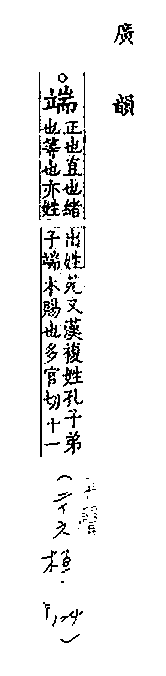 廣韻
○端
正也直也緒
也等也亦姓
出姓苑又漢複姓孔子弟
子端木賜也多官切十一
平聲
桓